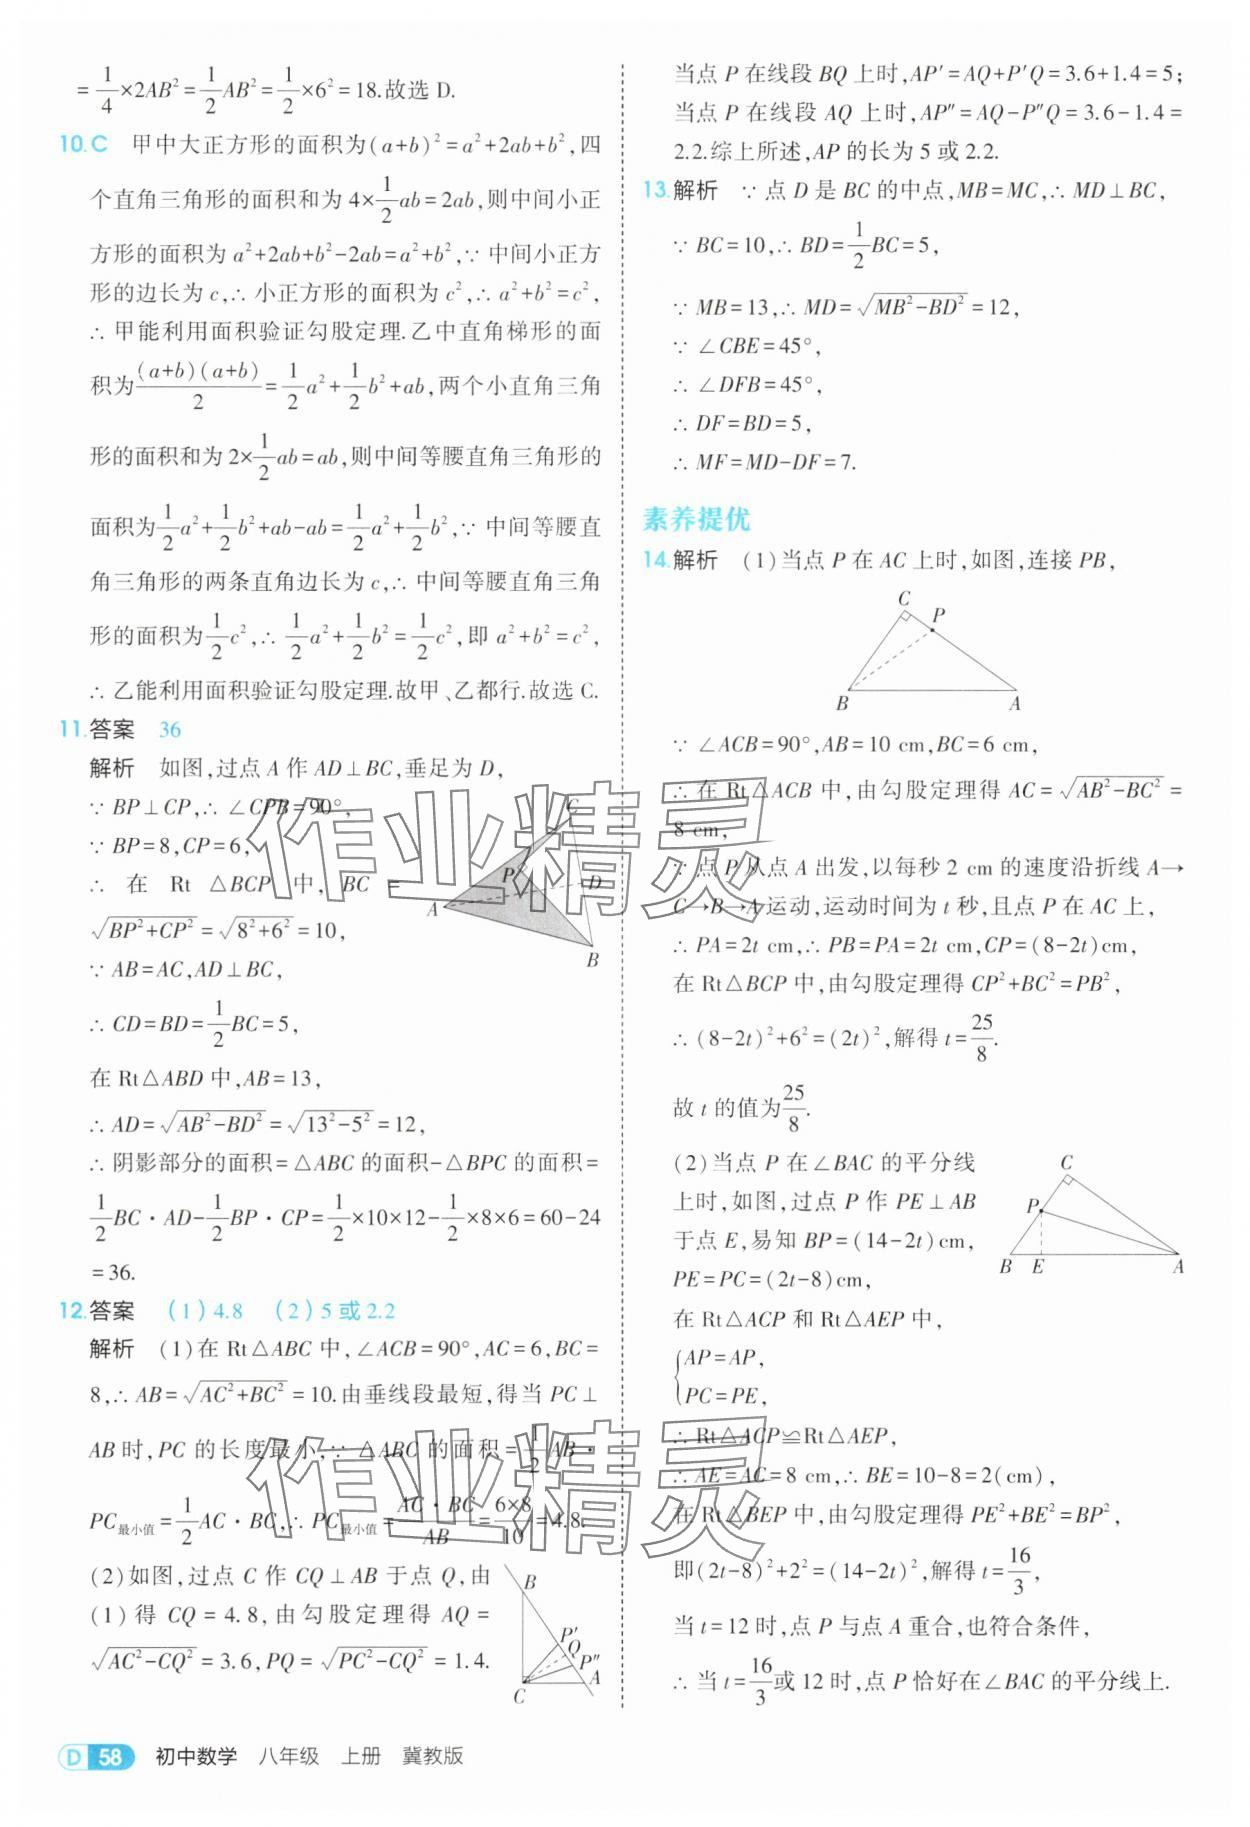 =1/4×2AB²=1/2AB²=1/2×6²=18.故选 D.
10.C 甲中大正方形的面积为(a+b)²=a²+2ab+b²,四
个直角三角形的面积和为 4×1/2ab=2ab,则中间小正
方形的面积为 a²+2ab+b²-2ab=a²+b²,∵ 中间小正方
形的边长为 c,∴ 小正方形的面积为 c²,∴ a²+b²=c²,
∴ 甲能利用面积验证勾股定理.乙中直角梯形的面
积为(a+b)(a+b)/2=1/2a²+1/2b²+ab,两个小直角三角
形的面积和为 2×1/2ab=ab,则中间等腰直角三角形的
面积为1/2a²+1/2b²+ab-ab=1/2a²+1/2b²,∵ 中间等腰直
角三角形的两条直角边长为 c,∴ 中间等腰直角三角
形的面积为1/2c²,∴ 1/2a²+1/2b²=1/2c²,即 a²+b²=c²,
∴ 乙能利用面积验证勾股定理.故甲、乙都行.故选 C.
11.答案 36
解析 如图,过点 A 作 AD⊥BC,垂足为 D,
∵ BP⊥CP,∴ ∠CPB=90°,
∵ BP=8,CP=6,
∴ 在 Rt △BCP 中, BC =
√(BP²+CP²)=√(8²+6²)=10,
∵ AB=AC,AD⊥BC,
∴ CD=BD=1/2BC=5,
在 Rt△ABD 中,AB=13,
∴ AD=√(AB²-BD²)=√(13²-5²)=12,
∴ 阴影部分的面积=△ABC 的面积-△BPC 的面积=
1/2BC·AD-1/2BP·CP=1/2×10×12-1/2×8×6=60-24
=36.
C
P
D
A
B
12.答案 (1)4.8 (2)5 或 2.2
解析 (1)在 Rt△ABC 中,∠ACB=90°,AC=6,BC=
8,∴ AB=√(AC²+BC²)=10.由垂线段最短,得当 PC⊥
AB 时,PC 的长度最小,∵ △ABC 的面积=1/2AB·
PC最小值=1/2AC·BC,∴ PC最小值=AC·BC/AB=6×8/10=4.8.
(2)如图,过点 C 作 CQ⊥AB 于点 Q,由
(1)得 CQ=4.8,由勾股定理得 AQ=
√(AC²-CQ²)=3.6,PQ=√(PC²-CQ²)=1.4.
B
P′
Q
P″
C
A
当点 P 在线段 BQ 上时,AP′=AQ+P′Q=3.6+1.4=5;
当点 P 在线段 AQ 上时,AP″=AQ-P″Q=3.6-1.4=
2.2.综上所述,AP 的长为 5 或 2.2.
13.解析 ∵ 点 D 是 BC 的中点,MB=MC,∴ MD⊥BC,
∵ BC=10,∴ BD=1/2BC=5,
∵ MB=13,∴ MD=√(MB²-BD²)=12,
∵ ∠CBE=45°,
∴ ∠DFB=45°,
∴ DF=BD=5,
∴ MF=MD-DF=7.
素养提优
14.解析 (1)当点 P 在 AC 上时,如图,连接 PB,
C
P
B
A
∵ ∠ACB=90°,AB=10 cm,BC=6 cm,
∴ 在 Rt△ACB 中,由勾股定理得 AC=√(AB²-BC²)=
8 cm,
∵ 点 P 从点 A 出发,以每秒 2 cm 的速度沿折线 A→
C→B→A 运动,运动时间为 t 秒,且点 P 在 AC 上,
∴ PA=2t cm,∴ PB=PA=2t cm,CP=(8-2t)cm,
在 Rt△BCP 中,由勾股定理得 CP²+BC²=PB²,
∴ (8-2t)²+6²=(2t)²,解得 t=25/8.
故 t 的值为25/8.
(2)当点 P 在∠BAC 的平分线
上时,如图,过点 P 作 PE⊥AB
于点 E,易知 BP=(14-2t)cm,
PE=PC=(2t-8)cm,
C
P
B
E
A
在 Rt△ACP 和 Rt△AEP 中,
{AP=AP,
PC=PE,
∴ Rt△ACP≌Rt△AEP,
∴ AE=AC=8 cm,∴ BE=10-8=2(cm),
在 Rt△BEP 中,由勾股定理得 PE²+BE²=BP²,
即(2t-8)²+2²=(14-2t)²,解得 t=16/3,
当 t=12 时,点 P 与点 A 重合,也符合条件,
∴ 当 t=16/3或 12 时,点 P 恰好在∠BAC 的平分线上.
作业精灵
作业精灵
D 58 初中数学 八年级 上册 冀教版